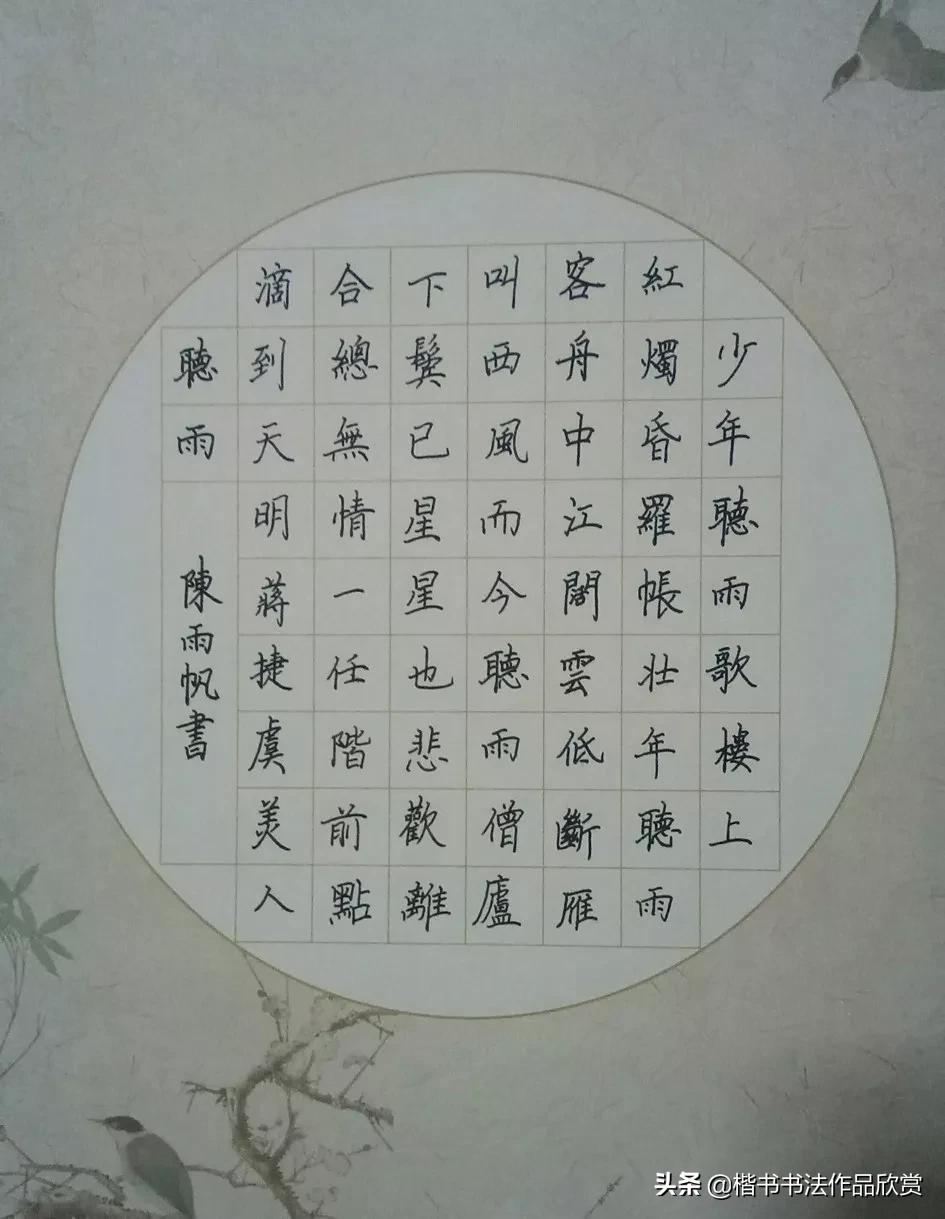 少年聽雨歌樓上
紅燭昏羅帳壯年聽雨
客舟中江闊雲低斷雁
叫西風而今聽雨僧廬
下鬢已星星也悲歡離
合總無情一任階前點
滴到天明蔣捷虞美人
聽雨
陳雨帆書
头条 @楷书书法作品欣赏